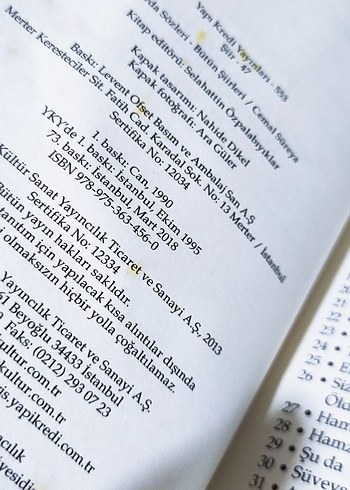 Yapı Kredi Yayınları - 553
Şiir - 47
da Sözleri - Bütün Şiirleri / Cemal Süreya
Kitap editörü: Selahattin Özpalabıyıklar
Kapak tasarımı: Nahide Dikel
Kapak fotoğrafı: Ara Güler
Baskı: Levent Ofset Basım ve Ambalaj San A.Ş.
Merter Keresteciler Sit. Fatih Cad. Karadal Sok. No: 13 Merter / İstanbul
Sertifika No: 12034
1. baskı: Can, 1990
YKY'de 1. baskı: İstanbul, Ekim 1995
73. baskı: İstanbul, Mart 2018
ISBN 978-975-363-456-0
Kültür Sanat Yayıncılık Ticaret ve Sanayi A.Ş, 2013
Sertifika No: 12334
Bütün yayın hakları saklıdır.
tanıtım için yapılacak kısa alıntılar dışında
olmaksızın hiçbir yolla çoğaltılamaz.
Yayıncılık Ticaret ve Sanayi A.Ş.
Beyoğlu 34433 İstanbul
Faks: (0212) 293 0723
kultur.com.tr
kultur.com.tr
is.yapikredi.com.tr
ncılık
vesidi
20
21
22
23
24
25 • E
26 • Siz
Öld
27 • Ham
28 • Hamz
29 • Şu da
30 • Süveyş
31